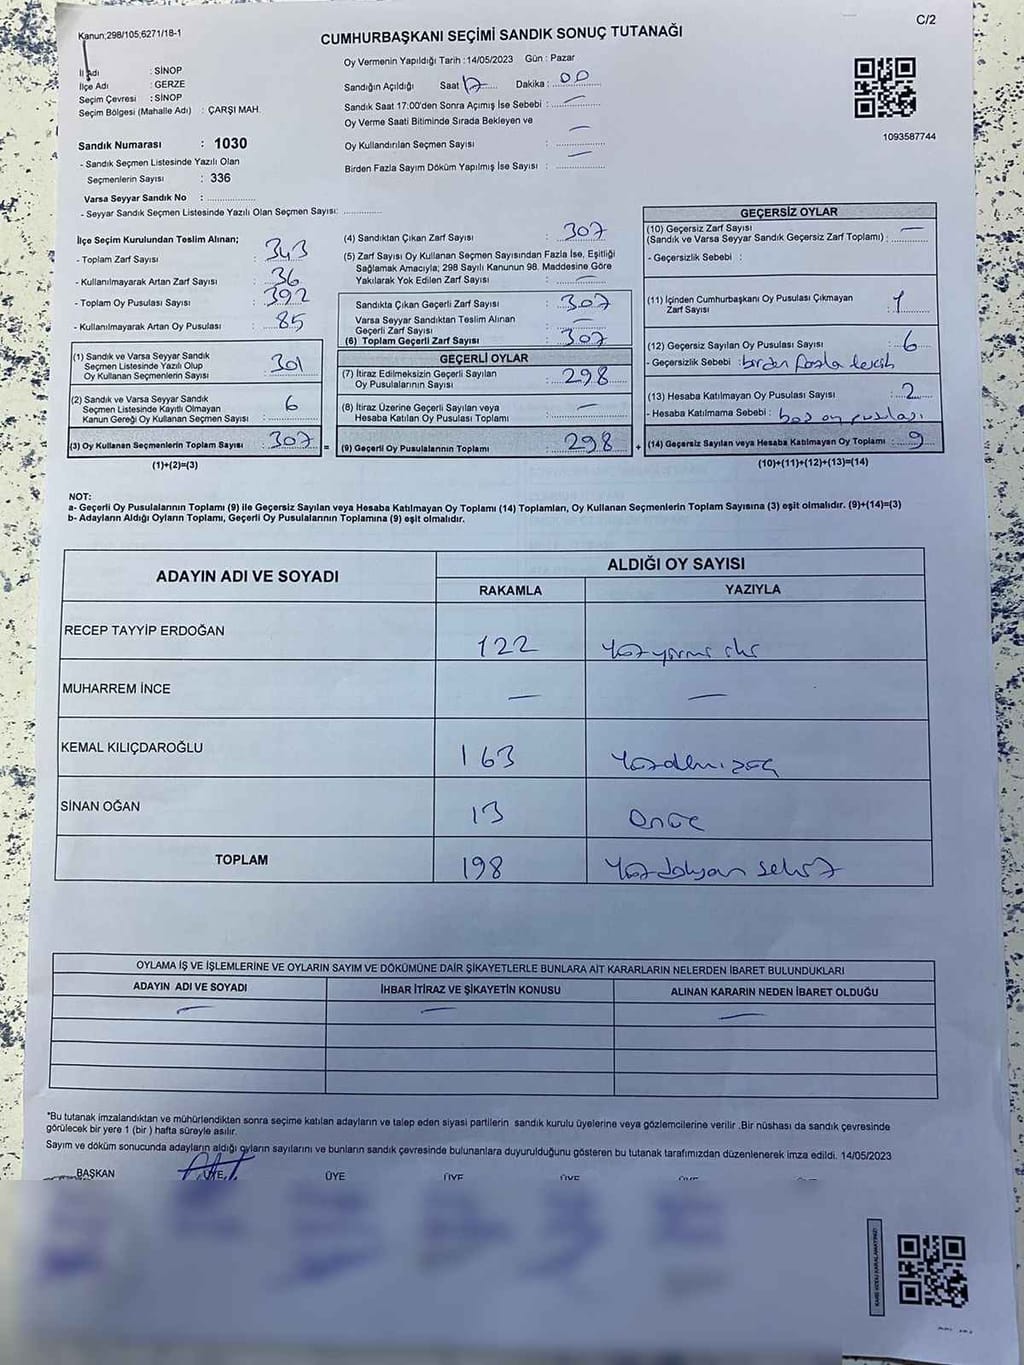 Kanun;298/105,6271/18-1
C/2
CUMHURBAŞKANI SEÇİMİ SANDIK SONUÇ TUTANAĞI
İl Adı : SİNOP
İlçe Adı : GERZE
Seçim Çevresi : SİNOP
Seçim Bölgesi (Mahalle Adı) : ÇARŞI MAH.
Sandık Numarası : 1030
- Sandık Seçmen Listesinde Yazılı Olan
Seçmenlerin Sayısı : 336
Varsa Seyyar Sandık No :
- Seyyar Sandık Seçmen Listesinde Yazılı Olan Seçmen Sayısı:
Oy Vermenin Yapıldığı Tarih :14/05/2023 Gün : Pazar
Sandığın Açıldığı Saat 17 Dakika : 00
Sandık Saat 17:00'den Sonra Açımış İse Sebebi : —
Oy Verme Saati Bitiminde Sırada Bekleyen ve
Oy Kullandırılan Seçmen Sayısı : —
Birden Fazla Sayım Döküm Yapılmış İse Sayısı : —
1093587744
İlçe Seçim Kurulundan Teslim Alınan;
- Toplam Zarf Sayısı : 343
- Kullanılmayarak Artan Zarf Sayısı : 36
- Toplam Oy Pusulası Sayısı : 392
- Kullanılmayarak Artan Oy Pusulası : 85
(1) Sandık ve Varsa Seyyar Sandık
Seçmen Listesinde Yazılı Olup
Oy Kullanan Seçmenlerin Sayısı : 301
(2) Sandık ve Varsa Seyyar Sandık
Seçmen Listesinde Kayıtlı Olmayan
Kanun Gereği Oy Kullanan Seçmen Sayısı : 6
(3) Oy Kullanan Seçmenlerin Toplam Sayısı : 307 =
(1)+(2)=(3)
(4) Sandıktan Çıkan Zarf Sayısı : 307
(5) Zarf Sayısı Oy Kullanan Seçmen Sayısından Fazla İse, Eşitliği
Sağlamak Amacıyla; 298 Sayılı Kanunun 98. Maddesine Göre
Yakılarak Yok Edilen Zarf Sayısı : —
Sandıkta Çıkan Geçerli Zarf Sayısı : 307
Varsa Seyyar Sandıktan Teslim Alınan
Geçerli Zarf Sayısı : —
(6) Toplam Geçerli Zarf Sayısı : 307
GEÇERLİ OYLAR
(7) İtiraz Edilmeksizin Geçerli Sayılan
Oy Pusulalarının Sayısı : 298
(8) İtiraz Üzerine Geçerli Sayılan veya
Hesaba Katılan Oy Pusulası Toplamı : —
(9) Geçerli Oy Pusulalarının Toplamı : 298 +
GEÇERSİZ OYLAR
(10) Geçersiz Zarf Sayısı
(Sandık ve Varsa Seyyar Sandık Geçersiz Zarf Toplamı) : —
- Geçersizlik Sebebi :
(11) İçinden Cumhurbaşkanı Oy Pusulası Çıkmayan
Zarf Sayısı : 1
(12) Geçersiz Sayılan Oy Pusulası Sayısı : 6
- Geçersizlik Sebebi : birden fazla tercih
(13) Hesaba Katılmayan Oy Pusulası Sayısı : 2
- Hesaba Katılmama Sebebi : boş oy pusulası
(14) Geçersiz Sayılan veya Hesaba Katılmayan Oy Toplamı : 9
(10)+(11)+(12)+(13)=(14)
NOT:
a- Geçerli Oy Pusulalarının Toplamı (9) ile Geçersiz Sayılan veya Hesaba Katılmayan Oy Toplamı (14) Toplamları, Oy Kullanan Seçmenlerin Toplam Sayısına (3) eşit olmalıdır. (9)+(14)=(3)
b- Adayların Aldığı Oyların Toplamı, Geçerli Oy Pusulalarının Toplamına (9) eşit olmalıdır.
ADAYIN ADI VE SOYADI
ALDIĞI OY SAYISI
RAKAMLA YAZIYLA
RECEP TAYYİP ERDOĞAN 122 Yüzyirmi iki
MUHARREM İNCE — —
KEMAL KILIÇDAROĞLU 163
SİNAN OĞAN 13 Onüç
TOPLAM 198 Yüzdoksan sekiz
OYLAMA İŞ VE İŞLEMLERİNE VE OYLARIN SAYIM VE DÖKÜMÜNE DAİR ŞİKAYETLERLE BUNLARA AİT KARARLARIN NELERDEN İBARET BULUNDUKLARI
ADAYIN ADI VE SOYADI İHBAR İTİRAZ VE ŞİKAYETİN KONUSU ALINAN KARARIN NEDEN İBARET OLDUĞU
— — —
*Bu tutanak imzalandıktan ve mühürlendikten sonra seçime katılan adayların ve talep eden siyasi partilerin sandık kurulu üyelerine veya gözlemcilerine verilir .Bir nüshası da sandık çevresinde
görülecek bir yere 1 (bir ) hafta süreyle asılır.
Sayım ve döküm sonucunda adayların aldığı oyların sayılarını ve bunların sandık çevresinde bulunanlara duyurulduğunu gösteren bu tutanak tarafımızdan düzenlenerek imza edildi. 14/05/2023
BAŞKAN ÜYE ÜYE ÜYE ÜYE